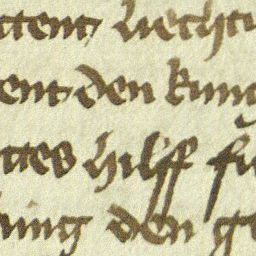 ttent liecht
ent den kung
ttes hilff fu
ning den g